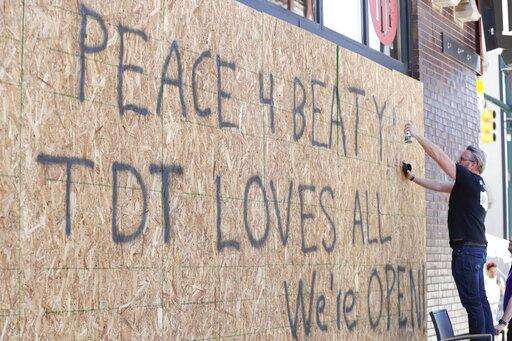 PEACE 4 BEATY!
TDT LOVES ALL
We're OPEN!